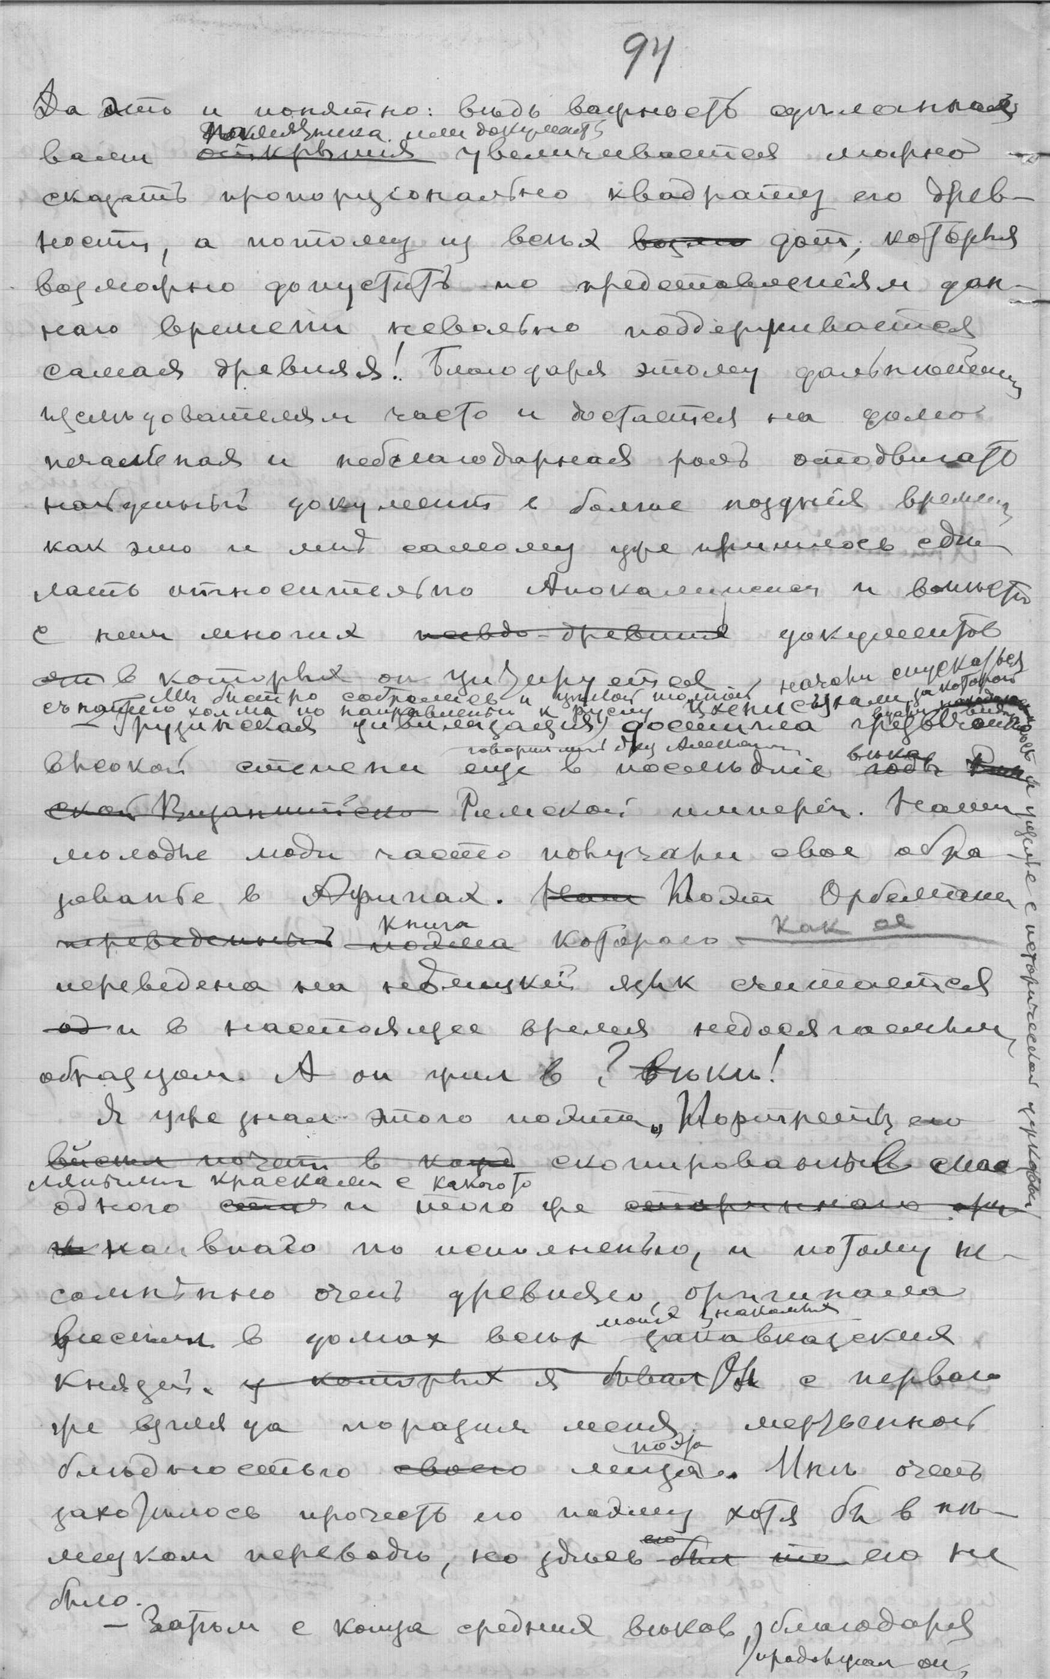 94
Да это и понятно: вѣдь важность сдѣланнаго
памятника или документа
вами открытія увеличивается можно
сказать пропорціонально квадрату его древ-
ности, а потому из всѣх дат, которыя
возможно допустить по представленіям дан-
наго времени невольно поддерживается
самая древняя! Благодаря этому дальнѣйшим
изслѣдователям часто и достается на долю
печальная и неблагодарная роль отодвигать
найденный документ в болѣе позднія времена
как это и мнѣ самому уже пришлось сдѣ-
лать относительно Апокалипсиса и вмѣстѣ
с ним многих псевдо-древних документов
в которых он цитируется
Мы быстро собрались и цѣлой толпой начали спускаться
съ нашего холма по направленію к
Грузинская цивилизація, достигла чрезвычайно
говорил мнѣ
высокой степени еще в послѣдніе годы вѣка
ской Византійско Римской имперіи. Наши
молодые люди часто получали свое обра-
зованье в Афинах. Наш Поэт Орбельяни
переведенный поэма книга котораго как ое
переведена на нѣмецкій язык считается
и в настоящее время недосягаемым
образцом. А он жил в ? вѣкѣ!
Я уже знал этого поэта. Портреты его
скопированные мас-
ляными красками с какого то
одного и того же стариннаго
наивнаго по исполненью, и потому не-
сомнѣнно очень древняго оригинала
моих знакомых
висѣли в домах всѣх закавказских
князей. у которых я бывал Он с перваго
же взгляда поразил меня мертвенной
поэта
блѣдностью своего лица. Мнѣ очень
захотѣлось прочесть его поэму хотя бы в нѣ-
его
мецком переводѣ, но здѣсь его не
было.
— Затѣм с конца средних вѣков, благодаря
продолжал он,